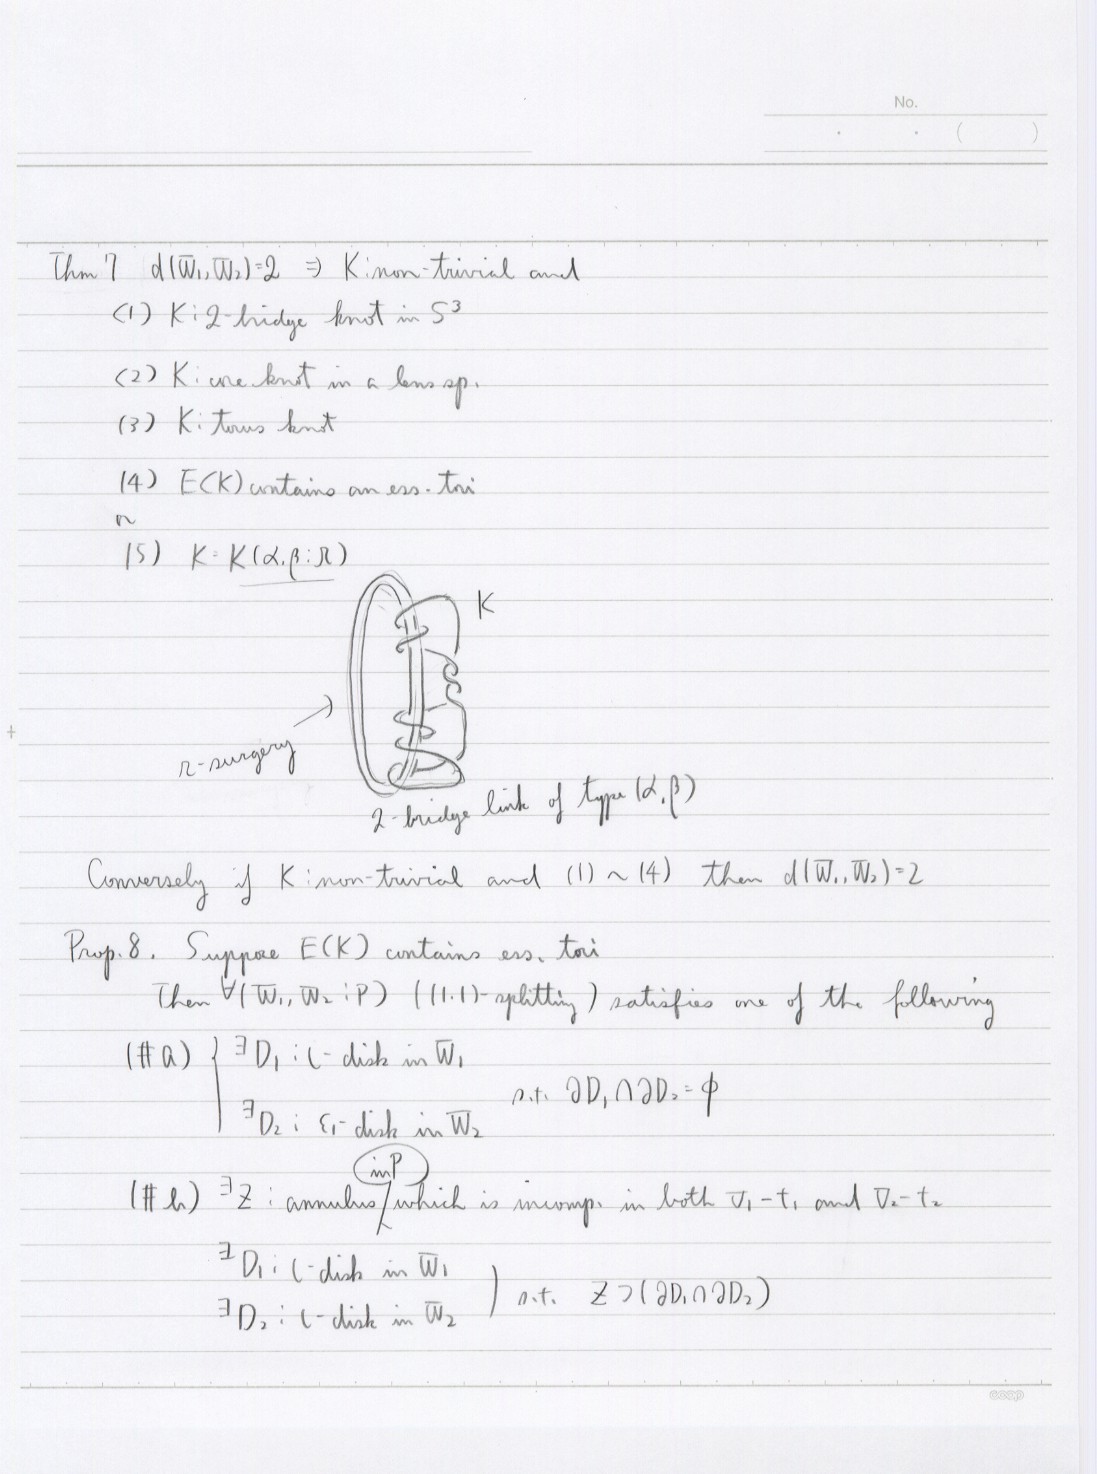 No.
( )
Thm 7 d(W̅₁, W̅₂)=2 ⇒ K: non-trivial and
(1) K: 2-bridge knot in S³
(2) K: core knot in a lens sp.
(3) K: torus knot
(4) E(K) contains an ess. tori
or
(5) K = K(α, β : r)
K
r-surgery
2-bridge link of type (α, β)
Conversely if K: non-trivial and (1) ~ (4) then d(W̅₁, W̅₂)=2
Prop. 8. Suppose E(K) contains ess. tori
Then ∀(W̅₁, W̅₂ : P) ((1.1)-splitting) satisfies one of the following
(#a) { ∃D₁ : c-disk in W̅₁
s.t. ∂D₁∩∂D₂=φ
∃D₂ : -disk in W̅₂
in P
(#b) ∃Z : annulus which is incomp. in both V₁-t₁ and V₂-t₂
∃D₁ : c-disk in W̅₁
s.t. Z⊃(∂D₁∩∂D₂)
∃D₂ : c-disk in W̅₂